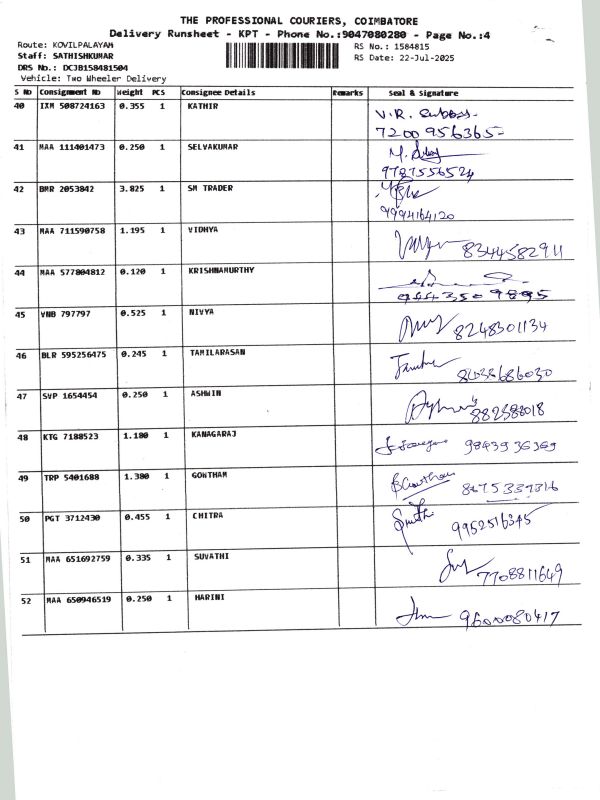 THE PROFESSIONAL COURIERS, COIMBATORE
Delivery Runsheet - KPT - Phone No.:9047080280 - Page No.:4
Route: KOVILPALAYAM
Staff: SATHISHKUMAR
DRS No.: DCJB158481504
Vehicle: Two Wheeler Delivery
RS No.: 1584815
RS Date: 22-Jul-2025
S No Consignment No Weight PCS Consignee Details Remarks Seal & Signature
40 IXM 508724163 0.355 1 KATHIR V.R.
7200 956365
41 MAA 111401473 0.250 1 SELVAKUMAR M.
9787556524
42 BMR 2053842 3.825 1 SM TRADER
9994164120
43 MAA 711590758 1.195 1 VIDHYA 8344582911
44 MAA 577804812 0.120 1 KRISHNAMURTHY
944350 9895
45 VNB 797797 0.525 1 NIVYA 8248301134
46 BLR 595256475 0.245 1 TAMILARASAN
47 SVP 1654454 0.250 1 ASHWIN
48 KTG 7188523 1.180 1 KANAGARAJ 9843936369
49 TRP 5401688 1.380 1 GOWTHAM B Gowtham
50 PGT 3712430 0.455 1 CHITRA 9952516345
51 MAA 651692759 0.335 1 SUVATHI
7708811649
52 MAA 650946519 0.250 1 HARINI 9600080417